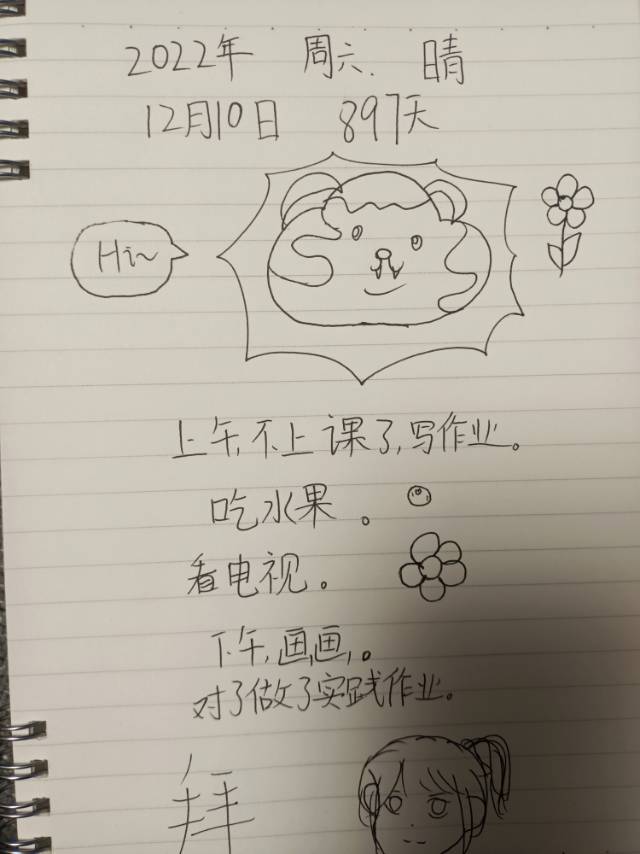 2022年 周六. 晴
12月10日 897天
Hi~
上午,不上课了,写作业。
吃水果。
看电视。
下午,画画,。
对了做了实践作业。
拜